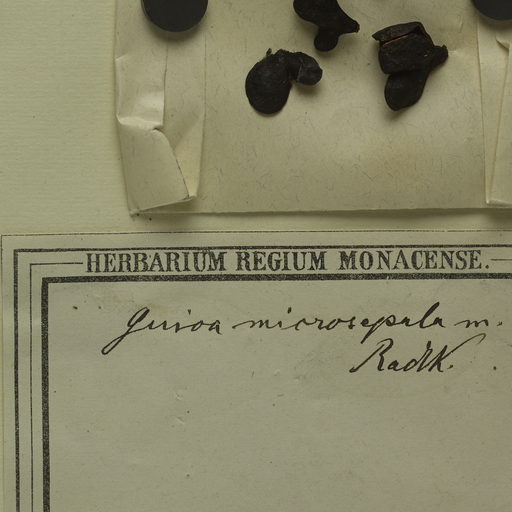 HERBARIUM REGIUM MONACENSE.
Guioa microsepala m.
Radlk.